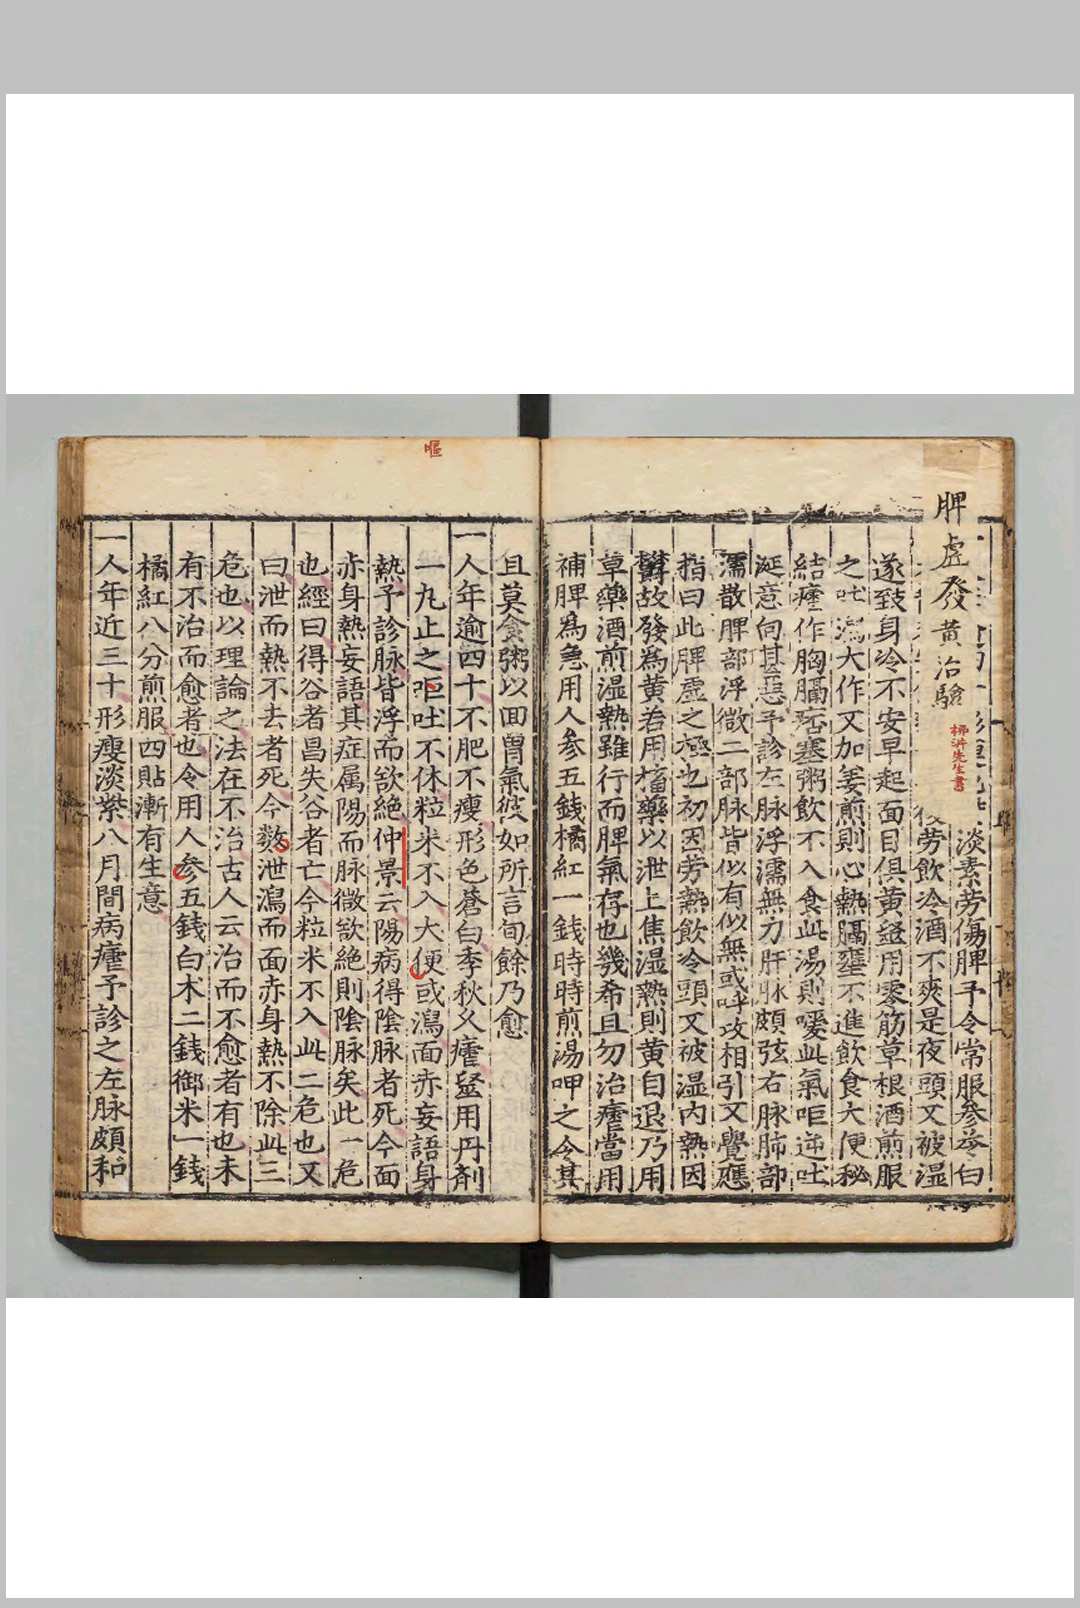 脾虛發黃治驗
淡素勞傷脾予令常服參苓白
勞飲冷酒不爽是夜頭又被湿
遂致身冷不安早起面目俱黃遂用零筋草根酒煎服
之吐瀉大作又加姜煎則心熱膈壅不進飲食大便秘
結瘧作胸膈痞塞粥飲不入食此湯則噯此氣咂逆吐
涎意向甚惡予診左脉浮濡無力肝脉頗弦右脉肺部
濡散脾部浮微二部脉皆似有似無或呼攻相引又覺應
指曰此脾虛之極也初因勞熱飲冷頭又被湿内熱因
欝故發爲黃若用搐藥以泄上焦湿熱則黃自退乃用
草藥酒煎湿熱雖行而脾氣存也幾希且勿治瘧當用
補脾爲急用人参五錢橘紅一錢時時煎湯呷之令其
且莫食粥以囬胃氣彼如所言旬餘乃愈
一人年逾四十不肥不瘦形色蒼白季秋久瘧醫用丹劑
一九止之咂吐不休粒米不入大便或瀉面赤妄語身
熱予診脉皆浮而欲絶仲景云陽病得陰脉者死今面
赤身熱妄語其症属陽而脉微欲絶則陰脉矣此一危
也經曰得谷者昌失谷者亡今粒米不入此二危也又
曰泄而熱不去者死今數泄瀉而面赤身熱不除此三
危也以理論之法在不治古人云治而不愈者有也未
有不治而愈者也令用人参五錢白术二錢御米一錢
橘紅八分煎服四貼漸有生意
一人年近三十形瘦淡紫八月間病瘧予診之左脉頗和
嘔